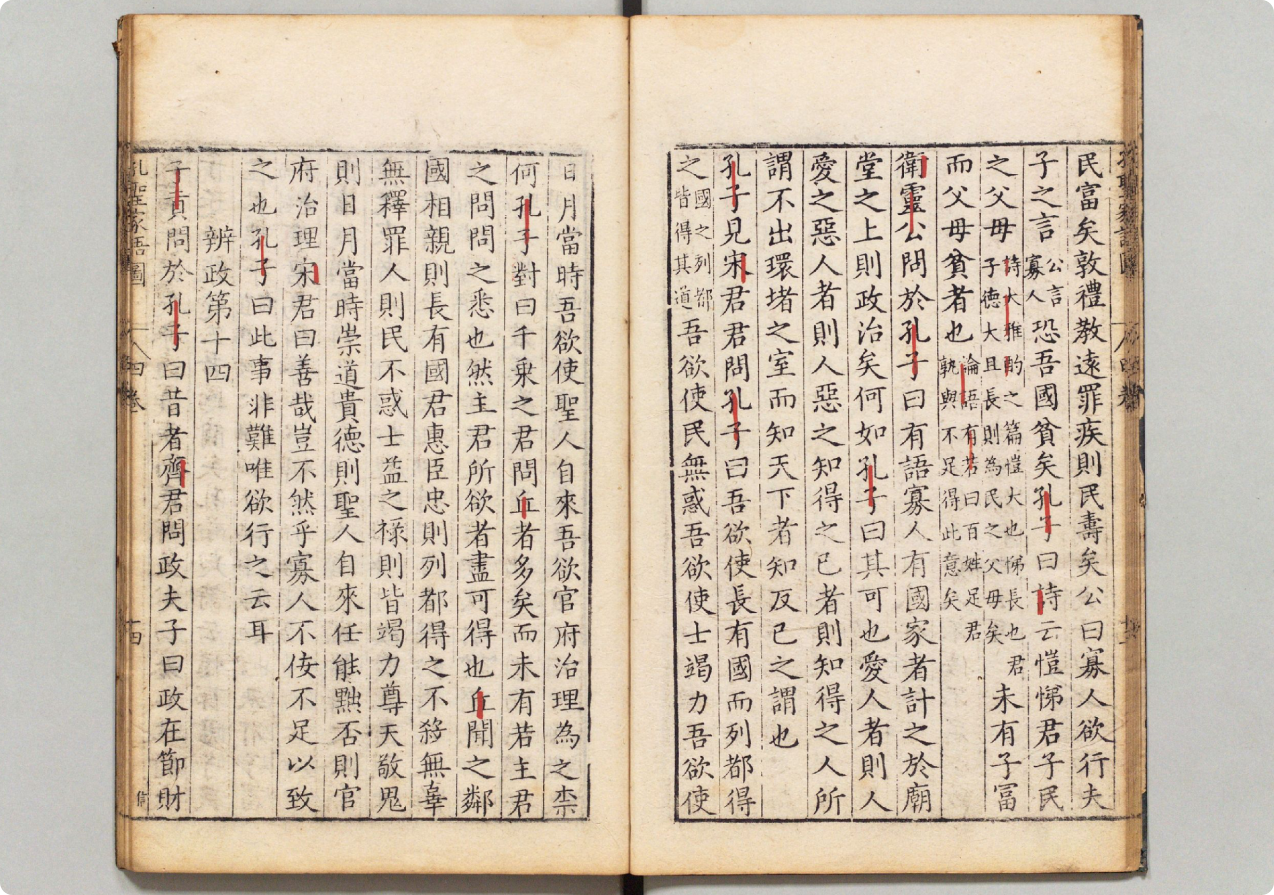 民富矣敦禮教遠罪疾則民壽矣公曰寡人欲行夫
子之言公言寡人恐吾國貧矣孔子曰詩云愷悌君子民
之父母詩大雅酌之篇愷大也悌長也君子德大且長則為民之父母矣未有子富
而父母貧者也論語有若曰百姓足君孰與不足得此意矣
衛靈公問於孔子曰有語寡人有國家者計之於廟
堂之上則政治矣何如孔子曰其可也愛人者則人
愛之惡人者則人惡之知得之已者則知得之人所
謂不出環堵之室而知天下者知反已之謂也
孔子見宋君君問孔子曰吾欲使長有國而列都得
之國之列都皆得其道吾欲使民無惑吾欲使士竭力吾欲使
日月當時吾欲使聖人自來吾欲官府治理為之柰
何孔子對曰千乘之君問丘者多矣而未有若主君
之問問之悉也然主君所欲者盡可得也丘聞之鄰
國相親則長有國君惠臣忠則列都得之不殺無辜
無釋罪人則民不惑士益之祿則皆竭力尊天敬鬼
則日月當時崇道貴德則聖人自來任能黜否則官
府治理宋君曰善哉豈不然乎寡人不佞不足以致
之也孔子曰此事非難唯欲行之云耳
辨政第十四
子貢問於孔子曰昔者齊君問政夫子曰政在節財
孔聖家語圖 四卷 十四